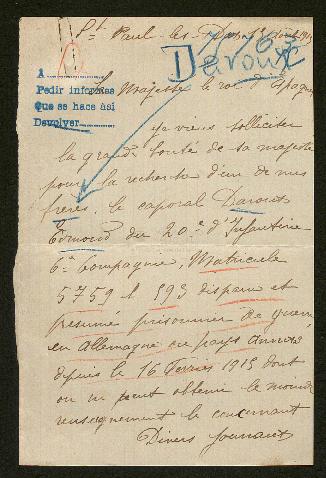 St Paul-les-Dax 13 Août 1915
Daroux
A
Pedir informes
Que se hace así
Devolver
Sa Majesté le roi d'Espagne
je viens solliciter
la grande bonté de sa majesté
pour la recherche d'un de mes
frères, le caporal Daroux
Edmond du 20e d'Infanterie
6e Compagnie, Matricule
5759 L 593 disparu et
présumé prisonnier de guerre
en Allemagne ou pays
depuis le 16 Février 1915 dont
on ne peut obtenir le moindre
renseignement le concernant
Divers journaux